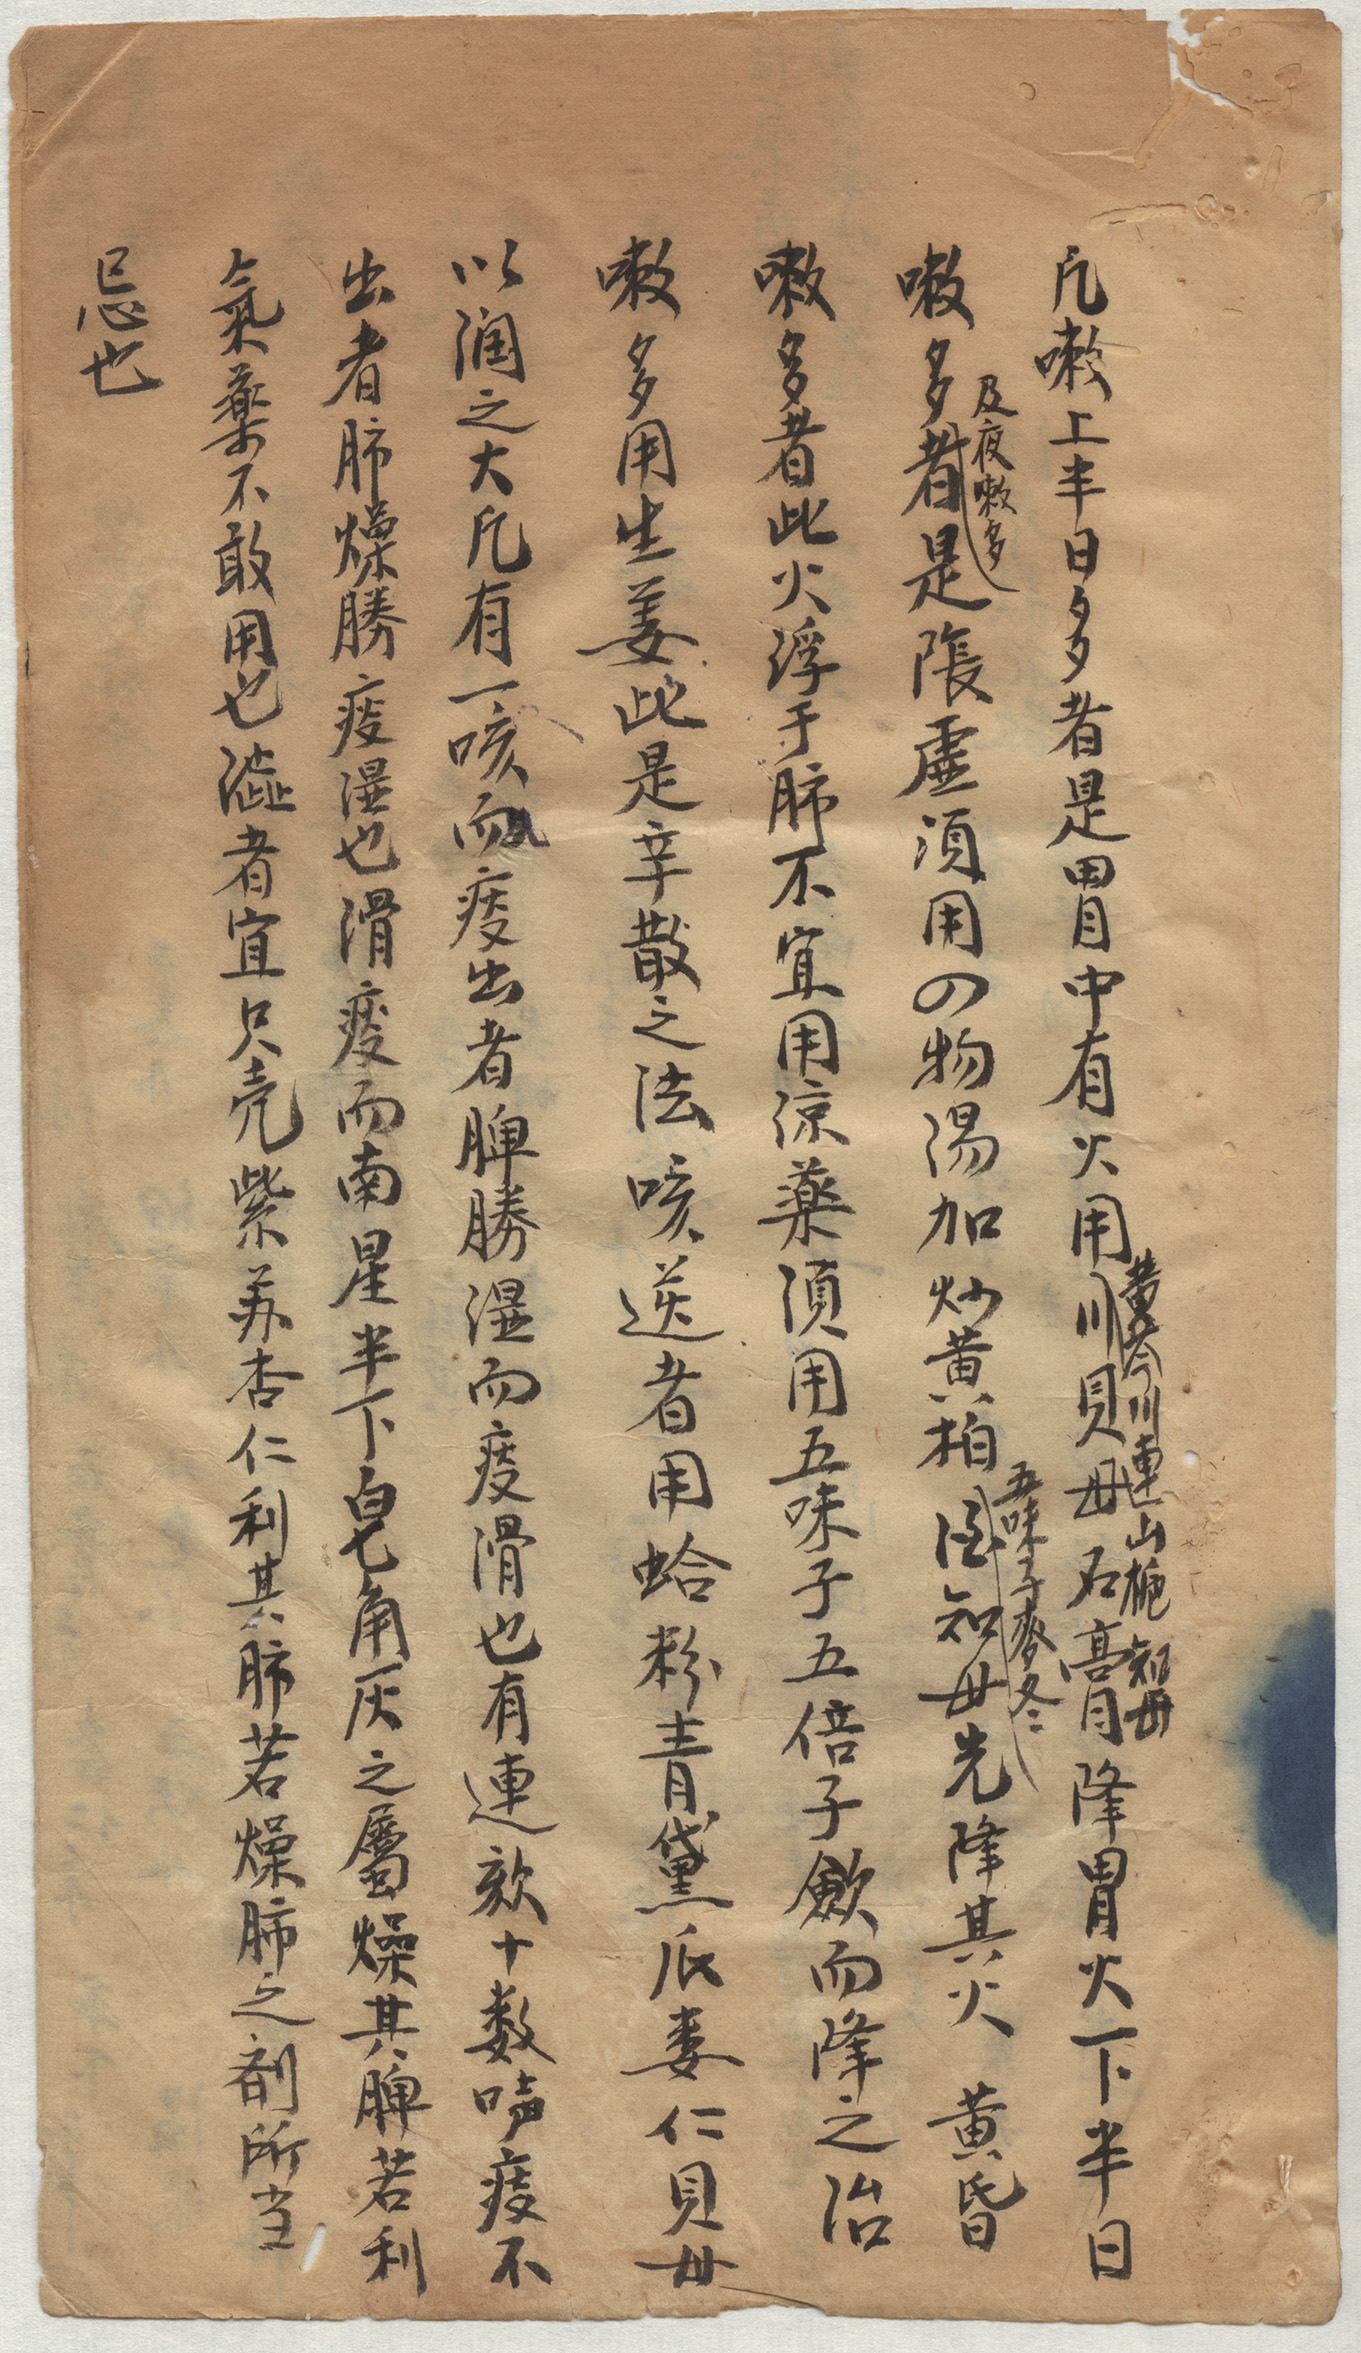 凡嗽上半日多者是胃中有火用川貝母石膏降胃火下半日
黄芩川連山梔知母
嗽多者是陰虛須用四物湯加炒黄柏知母先降其火 黄昏
及夜嗽多
五味子麥冬
嗽多者此火浮于肺不宜用涼藥須用五味子五倍子斂而降之治
嗽多用生姜此是辛散之法 咳逆者用蛤粉青黛瓜蒌仁貝母
以润之大凡有一咳而痰出者脾勝濕而痰滑也有連欬十数声痰不
出者肺燥勝痰湿也滑痰而南星半下皂角灰之屬燥其脾若利
氣藥不敢用也澁者宜只壳紫苏杏仁利其肺若燥肺之剤所当
忌也